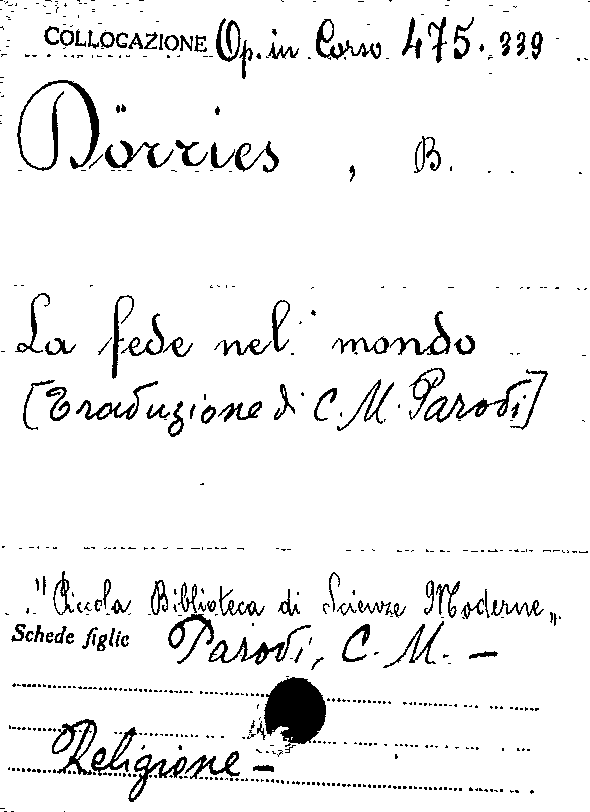 COLLOCAZIONE Op. in Corso 475.339
Dörries, B.
La fede nel mondo
[Traduzione di C. M. Parodi]
"Piccola Biblioteca di Scienze Moderne„
Schede figlie Parodi, C. M. —
Religione —